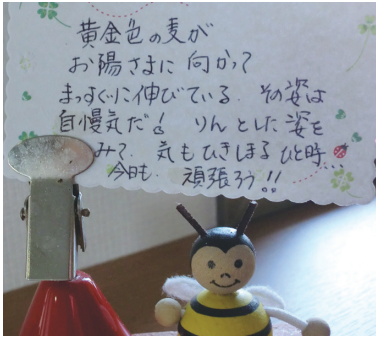 黄金色の麦が
お陽さまに向かって
まっすぐに伸びている. その姿は
自慢気だ! りんとした姿を
みて. 気もひきしまるひと時...
今日も. 頑張ろう!!